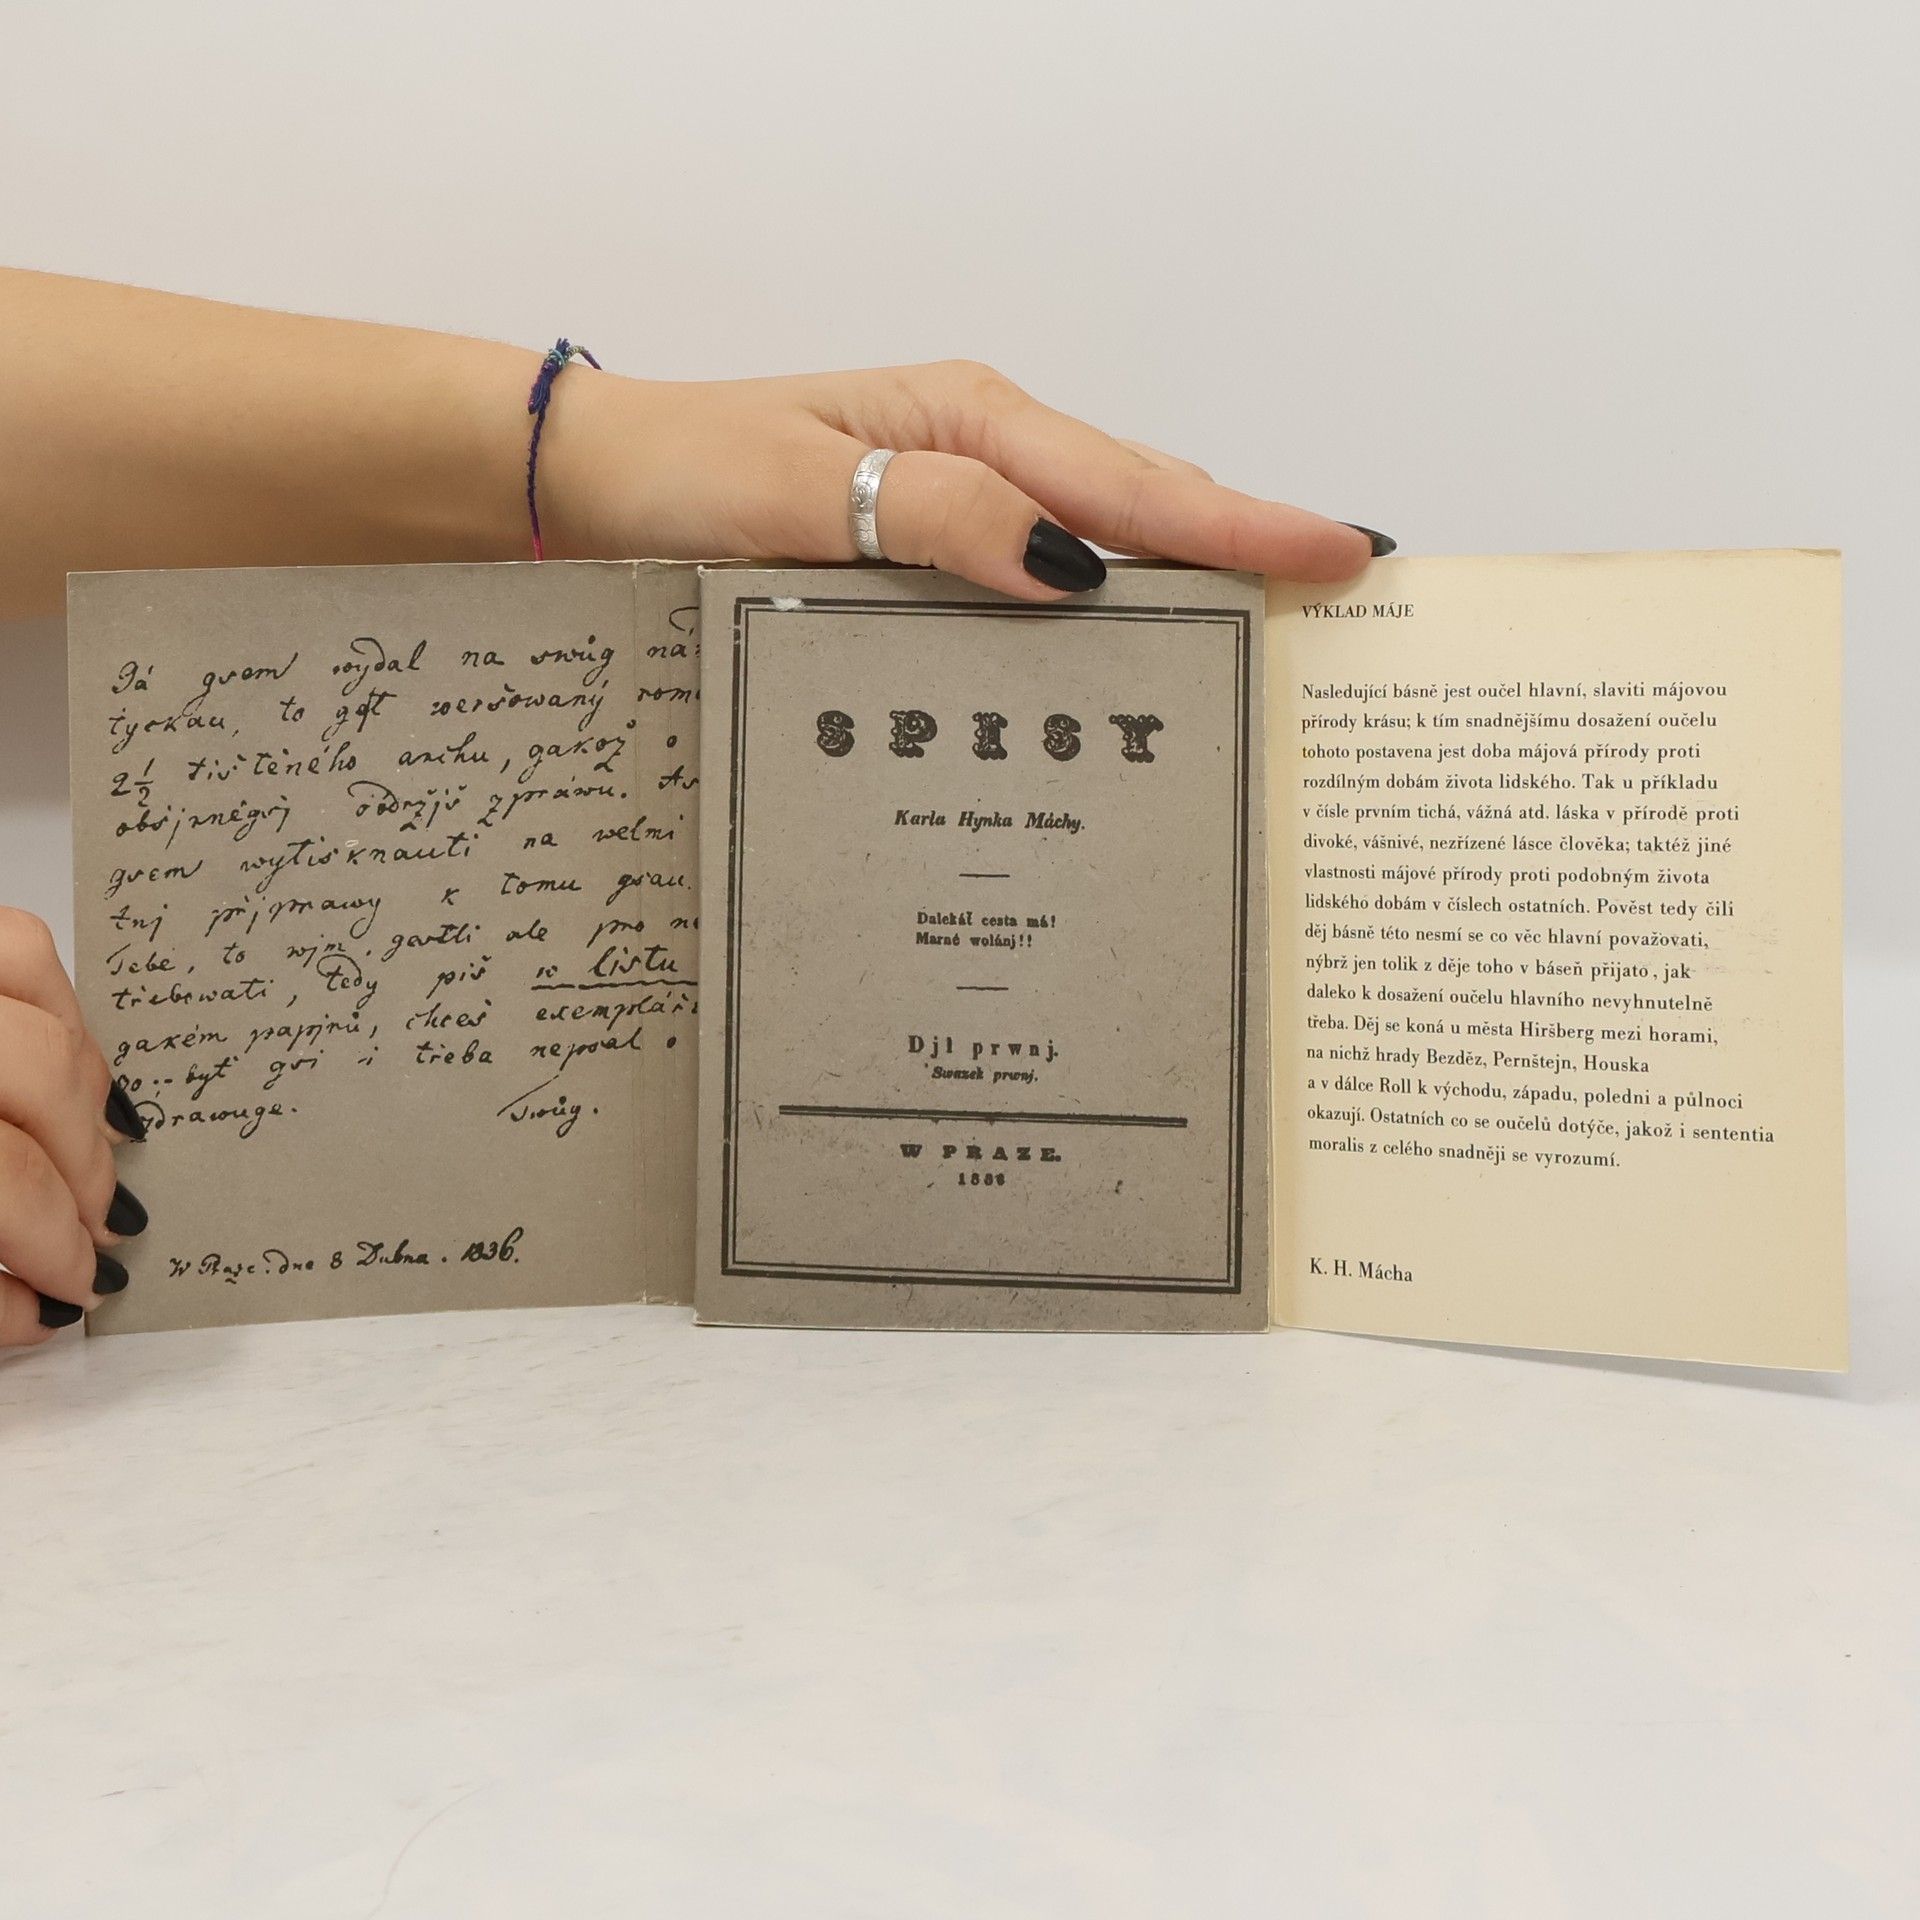 Já gsem wydal na swůg ná
tyckau, to gest weršowaný rom
2½ tištěného archu, gakož o
obšjrněgšj obdržjš zpráwu. As
gsem wytisknauti na welmi
tnj přjprawy k tomu gsau.
Tebe, to wjm, gestli ale pro ne
třebowati, tedy piš w listu
gakém papjrů, chceš exemplář
byť gsi i třeba nepsal o
zdrawuge.
Twůg.
W Praze. dne 8 Dubna. 1836.
SPISY
Karla Hynka Máchy.
Daleкáť cesta má!
Marné wolánj!!
Djl prwnj.
Swazek prwnj.
W PRAZE.
1836
VÝKLAD MÁJE
Nasledující básně jest oučel hlavní, slaviti májovou
přírody krásu; k tím snadnějšímu dosažení oučelu
tohoto postavena jest doba májová přírody proti
rozdílným dobám života lidského. Tak u příkladu
v čísle prvním tichá, vážná atd. láska v přírodě proti
divoké, vášnivé, nezřízené lásce člověka; taktéž jiné
vlastnosti májové přírody proti podobným života
lidského dobám v číslech ostatních. Pověst tedy čili
děj básně této nesmí se co věc hlavní považovati,
nýbrž jen tolik z děje toho v báseň přijato, jak
daleko k dosažení oučelu hlavního nevyhnutelně
třeba. Děj se koná u města Hiršberg mezi horami,
na nichž hrady Bezděz, Pernštejn, Houska
a v dálce Roll k východu, západu, poledni a půlnoci
okazují. Ostatních co se oučelů dotýče, jakož i sententia
moralis z celého snadněji se vyrozumí.
K. H. Mácha